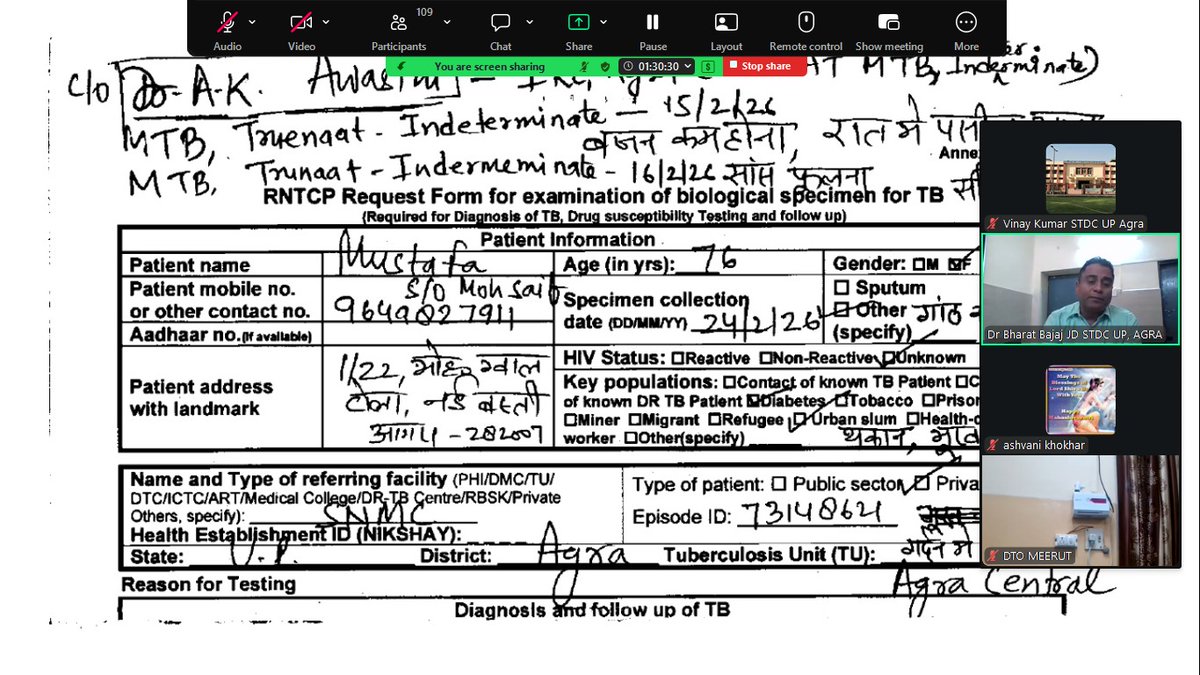 109
Audio Video Participants Chat Share Pause Layout Remote control Show meeting More
You are screen sharing 01:30:30 Stop share
C/o Dr. A.K. Awasthi MTB, Indeterminate)
MTB, Truenaat - Indeterminate - 15/2/26
वजन कम होना, रात मे
MTB, Trunaat - Indermeminate - 16/2/26 सांस फूलना
Anne
RNTCP Request Form for examination of biological specimen for TB
(Required for Diagnosis of TB, Drug susceptibility Testing and follow up)
Patient Information
Patient name Mustafa Age (in yrs): 76 Gender: M F
S/o Mohsait
Patient mobile no. or other contact no. 9649827911
Specimen collection date (DD/MM/YY) 24/2/26
Sputum
Other गांठ
(specify)
Aadhaar no.(If available)
Patient address with landmark
1/22,
नई बस्ती
आगरा - 282007
HIV Status: Reactive Non-Reactive Unknown
Key populations: Contact of known TB Patient C
of known DR TB Patient Diabetes Tobacco Prison
Miner Migrant Refugee Urban slum Health-c
worker Other(specify) थकान,
Name and Type of referring facility (PHI/DMC/TU/
DTC/ICTC/ART/Medical College/DR-TB Centre/RBSK/Private
Others, specify): SNMC
Health Establishment ID (NIKSHAY):
Type of patient: Public sector Priva
Episode ID: 73148621
State: U.P. District: Agra Tuberculosis Unit (TU):
गर्दन मे
Agra Central
Reason for Testing
Diagnosis and follow up of TB
Vinay Kumar STDC UP Agra
Dr Bharat Bajaj JD STDC UP, AGRA
ashvani khokhar
DTO MEERUT